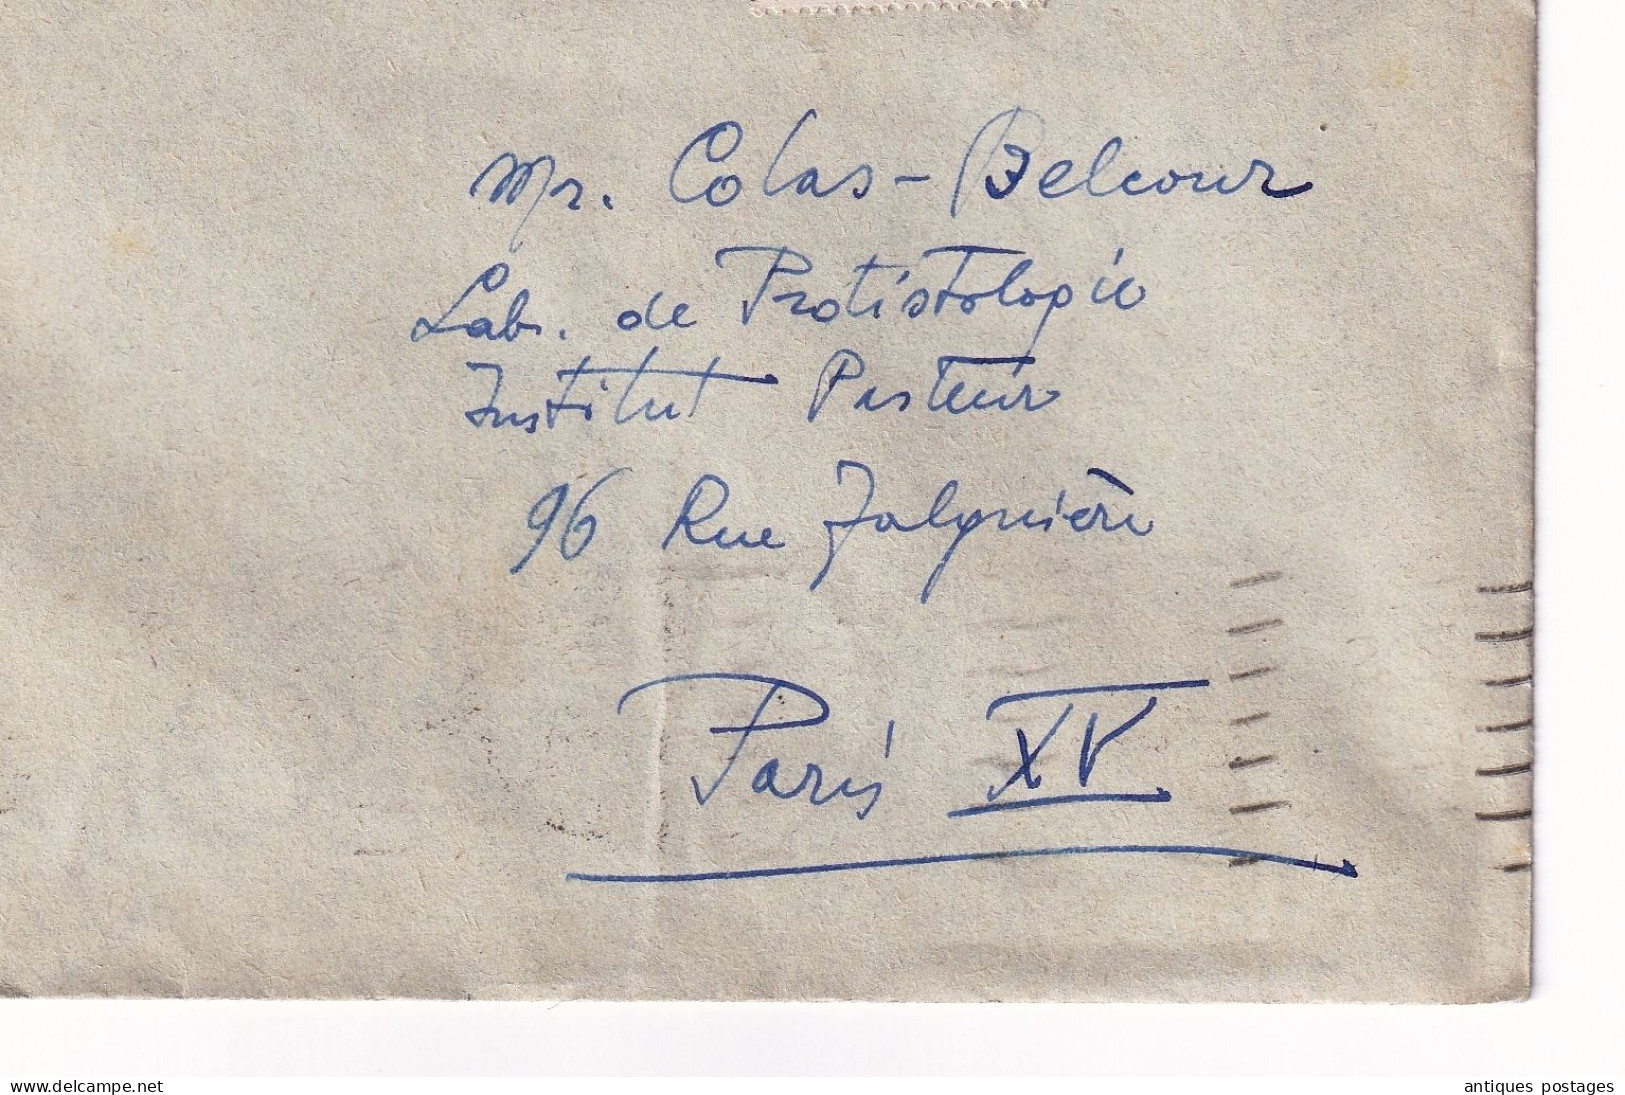 Mr. Colas-Belcour
Lab. de Protistologie
Institut Pasteur
96 Rue Falguière
Paris XV
www.delcampe.net
antiques postages